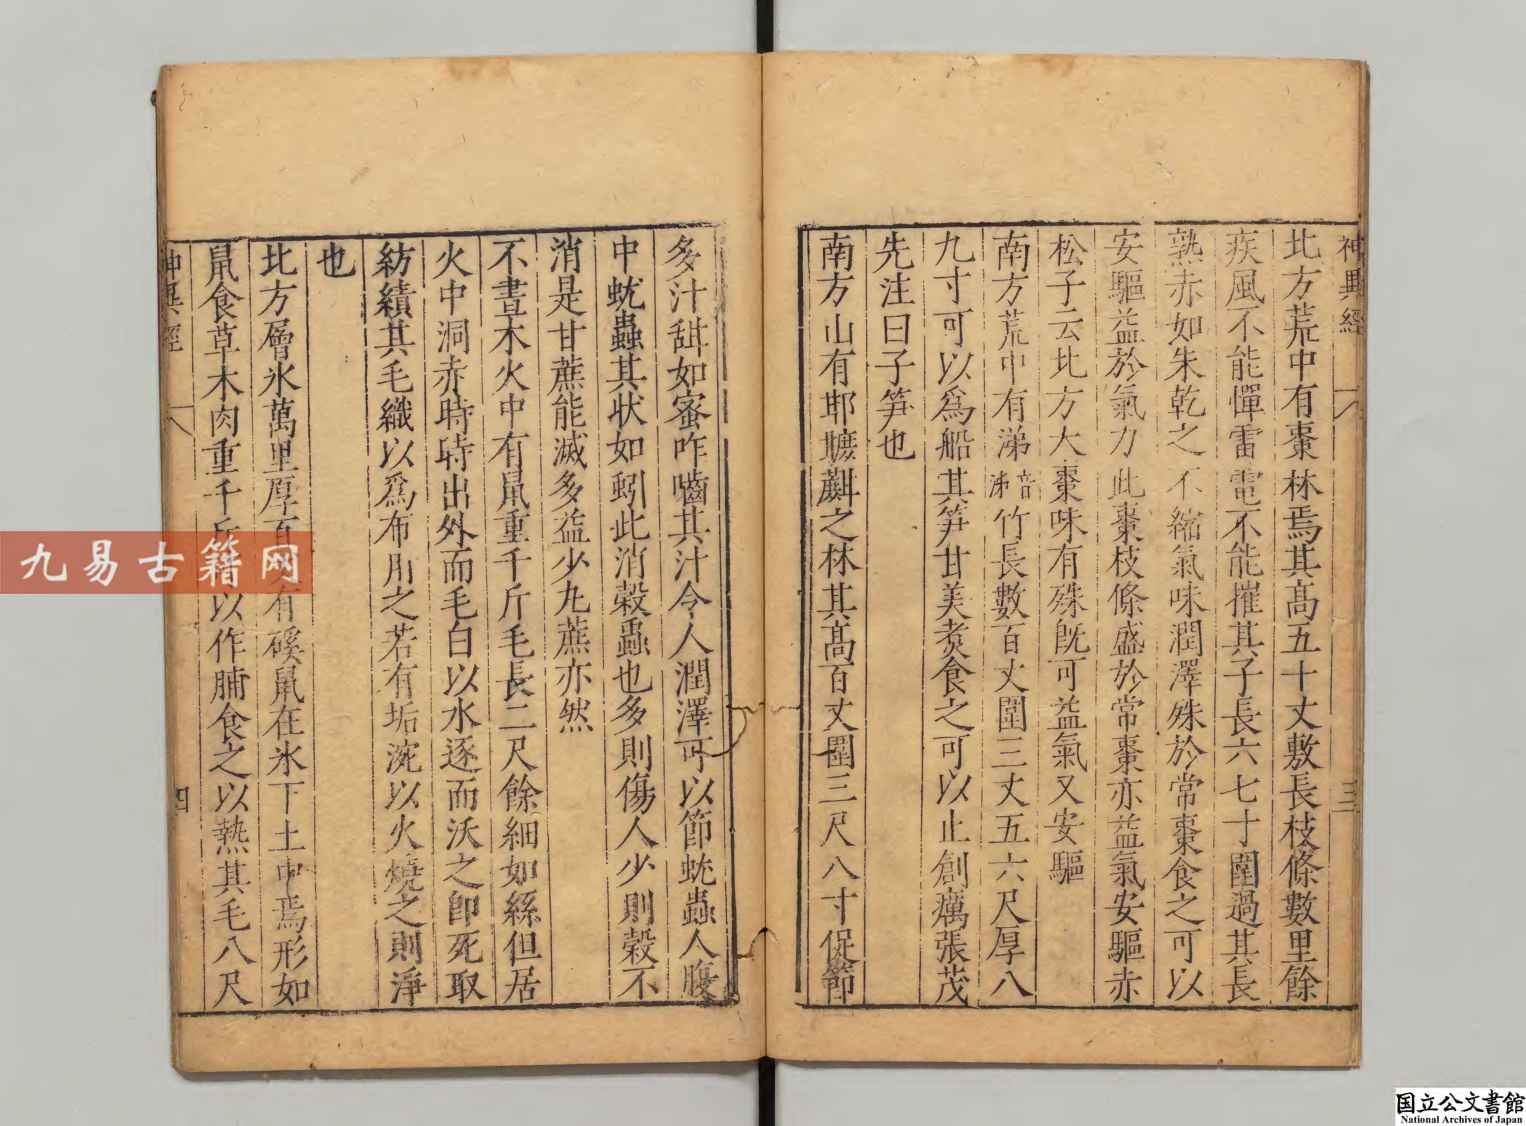 神異經 三
北方荒中有棗林焉其高五十丈敷長枝條數里餘
疾風不能僤雷電不能摧其子長六七寸圍過其長
熟赤如朱乾之不縮氣味潤澤殊於常棗食之可以
安驅益於氣力此棗枝條盛於常棗亦益氣安驅赤
松子云北方大棗味有殊既可益氣又安驅
南方荒中有涕音涕竹長數百丈圍三丈五六尺厚八
九寸可以爲船其笋甘美煑食之可以止創癘張茂
先注曰子笋也
南方山有𨚗㼅之林其高百丈圍三尺八寸促節
多汁甜如蜜咋嚙其汁令人潤澤可以節蚘蟲人腹
中蚘蟲其状如蚓此消穀蟲也多則傷人少則穀不
消是甘蔗能滅多益少凢蔗亦然
不晝木火中有鼠重千斤毛長二尺餘細如絲但居
火中洞赤時時出外而毛白以水逐而沃之即死取
紡績其毛織以爲布用之若有垢涴以火燒之則淨
也
北方層氷萬里厚百有磎鼠在氷下土中焉形如
鼠食草木肉重千斤以作脯食之以熱其毛八尺
神異經 四
九易古籍网
国立公文書館
National Archives of Japan